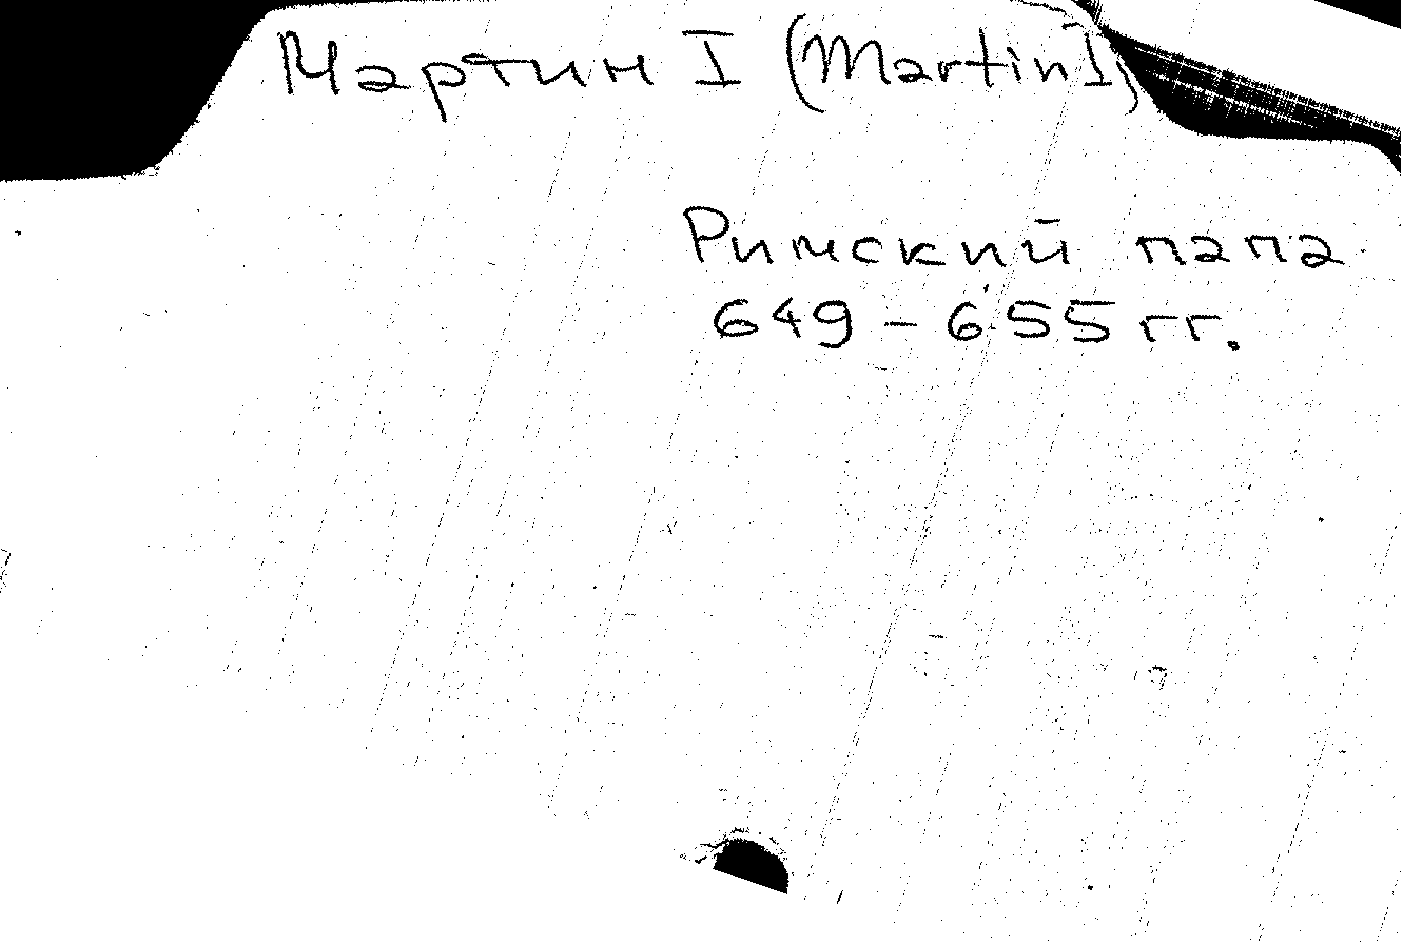 Мартин I (Martin I)
Римский папа
649 – 655 гг.